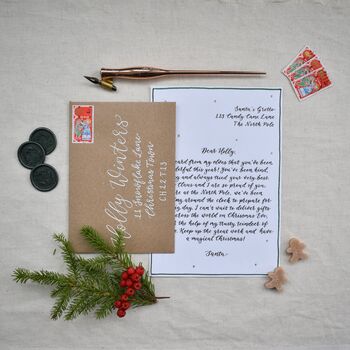 Holly Winters
21 Snowflake Lane
Christmas Town
Santa's Grotto
123 Candy Cane Lane
The North Pole
Dear Holly,
eard from my elves that you've been
derful this year! You've been kind,
and always tried your very best.
Claus and I are so proud of you.
at the North Pole, we've been
around the clock to prepare for
day. I can't wait to deliver gifts
across the world on Christmas Eve,
the help of my trusty reindeer of
Keep up the great work and have
a magical Christmas!
Santa